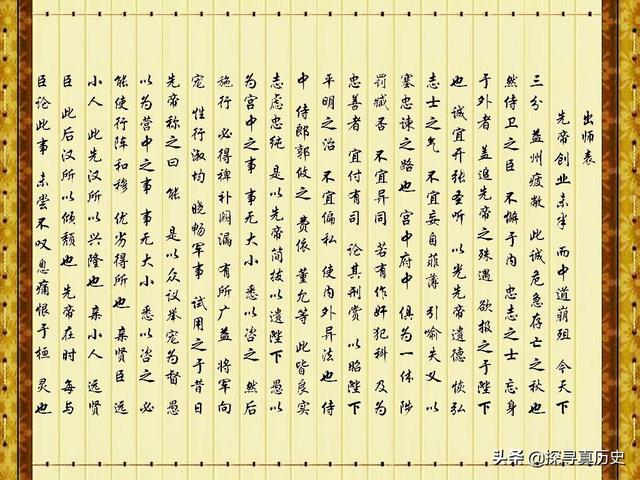 出师表
先帝创业未半 而中道崩殂 今天下
三分 益州疲敝 此诚危急存亡之秋也
然侍卫之臣 不懈于内 忠志之士 忘身
于外者 盖追先帝之殊遇 欲报之于陛下
也 诚宜开张圣听 以光先帝遗德 恢弘
志士之气 不宜妄自菲薄 引喻失义 以
塞忠谏之路也 宫中府中 俱为一体 陟
罚臧否 不宜异同 若有作奸犯科 及为
忠善者 宜付有司 论其刑赏 以昭陛下
平明之治 不宜偏私 使内外异法也 侍
中 侍郎郭攸之 费依 董允等 此皆良实
志虑忠纯 是以先帝简拔以遗陛下 愚以
为宫中之事 事无大小 悉以咨之 然后
施行 必得裨补阙漏 有所广益 将军向
宠 性行淑均 晓畅军事 试用之于昔日
先帝称之曰 能 是以众议举宠为督 愚
以为营中之事 事无大小 悉以咨之 必
能使行阵和穆 优劣得所也 亲贤臣 远
小人 此先汉所以兴隆也 亲小人 远贤
臣 此后汉所以倾颓也 先帝在时 每与
臣论此事 未尝不叹息痛恨于桓 灵也
头条 @探寻真历史